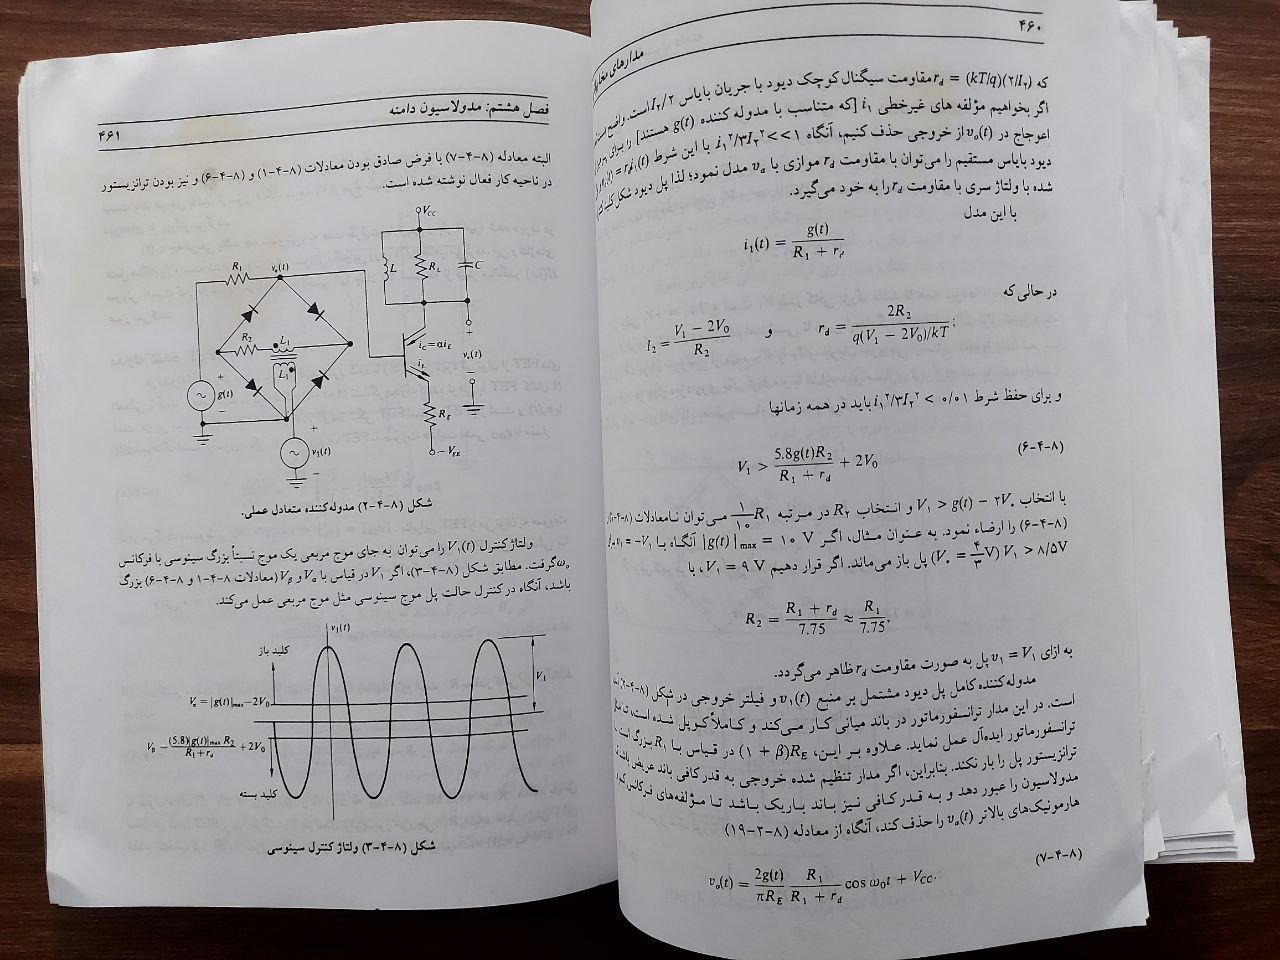 ۴۶۰
مدارهای مخابر
که r_d = (kT/q)(۲/I_۲) مقاومت سیگنال کوچک دیود با جریان بایاس I_۲/۲ است. واضح است
اگر بخواهیم مؤلفه های غیرخطی i_۱ [که متناسب با مدوله کننده g(t) هستند] را برای
اعوجاج در v_o(t) از خروجی حذف کنیم، آنگاه i_۱^۲/۳I_۲^۲<<۱ با این شرط
دیود بایاس مستقیم را می‌توان با مقاومت r_d موازی با v_a مدل نمود؛ لذا پل دیود شکل
شده با ولتاژ سری با مقاومت r_d را به خود می‌گیرد.
با این مدل
i_1(t) = g(t) / (R_1 + r_d)
در حالی که
I_2 = (V_1 − 2V_0) / R_2 و r_d = 2R_2 / (q(V_1 − 2V_0)/kT);
و برای حفظ شرط i_۱^۲/۳I_۲^۲ < ۰/۰۱ باید در همه زمانها
V_1 > 5.8g(t)R_2 / (R_1 + r_d) + 2V_0 (۸-۴-۶)
با انتخاب V_۱ > g(t) − ۲V_۰ و انتخاب R_۲ در مرتبه ۱/۱۰ R_۱ می‌توان نامعادلات
(۸-۴-۶) را ارضاء نمود. به عنوان مثال، اگر |g(t)|_max = ۱۰ V آنگاه با v_۱ = −V_۱
V_۱ > ۸/۵V (V_۰ = ۳/۴V) پل باز می‌ماند. اگر قرار دهیم V_۱ = ۹ V، با
R_2 = (R_1 + r_d) / 7.75 ≈ R_1 / 7.75.
به ازای v_۱ = V_۱ پل به صورت مقاومت r_d ظاهر می‌گردد.
مدوله‌کننده کامل پل دیود مشتمل بر منبع v_۱(t) و فیلتر خروجی در شکل (۸-۴-۲)
است. در این مدار ترانسفورماتور در باند میانی کار می‌کند و کاملاً کوپل شده است، تا مثل
ترانسفورماتور ایده‌آل عمل نماید. علاوه بر این، (۱ + β)R_E در قیاس با R_۱ بزرگ است
ترانزیستور پل را بار نکند. بنابراین، اگر مدار تنظیم شده خروجی به قدر کافی باند عریض باشد
مدولاسیون را عبور دهد و به قدر کافی نیز باند باریک باشد تا مؤلفه‌های فرکانس
هارمونیک‌های بالاتر v_a(t) را حذف کند، آنگاه از معادله (۸-۲-۱۹)
v_o(t) = (2g(t) / πR_E) (R_1 / (R_1 + r_d)) cos ω_0t + V_CC. (۸-۴-۷)
فصل هشتم: مدولاسیون دامنه
۴۶۱
البته معادله (۸-۴-۷) با فرض صادق بودن معادلات (۸-۴-۱) و (۸-۴-۶) و نیز بودن ترانزیستور
در ناحیه کار فعال نوشته شده است.
V_CC
L
R_L
C
R_1
v_a(t)
R_2
L_1
L_1
i_C=αi_E
i_E
+
v_o(t)
−
+
g(t)
−
R_E
+
v_1(t)
−
−V_EE
شکل (۸-۴-۲) مدوله‌کننده متعادل عملی.
ولتاژ کنترل V_۱(t) را می‌توان به جای موج مربعی یک موج نسبتاً بزرگ سینوسی با فرکانس
ω_۰ گرفت. مطابق شکل (۸-۴-۳)، اگر V_۱ در قیاس با V_α و V_β (معادلات ۸-۴-۱ و ۸-۴-۶) بزرگ
باشد، آنگاه در کنترل حالت پل موج سینوسی مثل موج مربعی عمل می‌کند.
v_1(t)
کلید باز
V_1
V_α = |g(t)|_max − 2V_0
V_β = (5.8)|g(t)|_max R_2 / (R_1 + r_d) + 2V_0
کلید بسته
شکل (۸-۴-۳) ولتاژ کنترل سینوسی